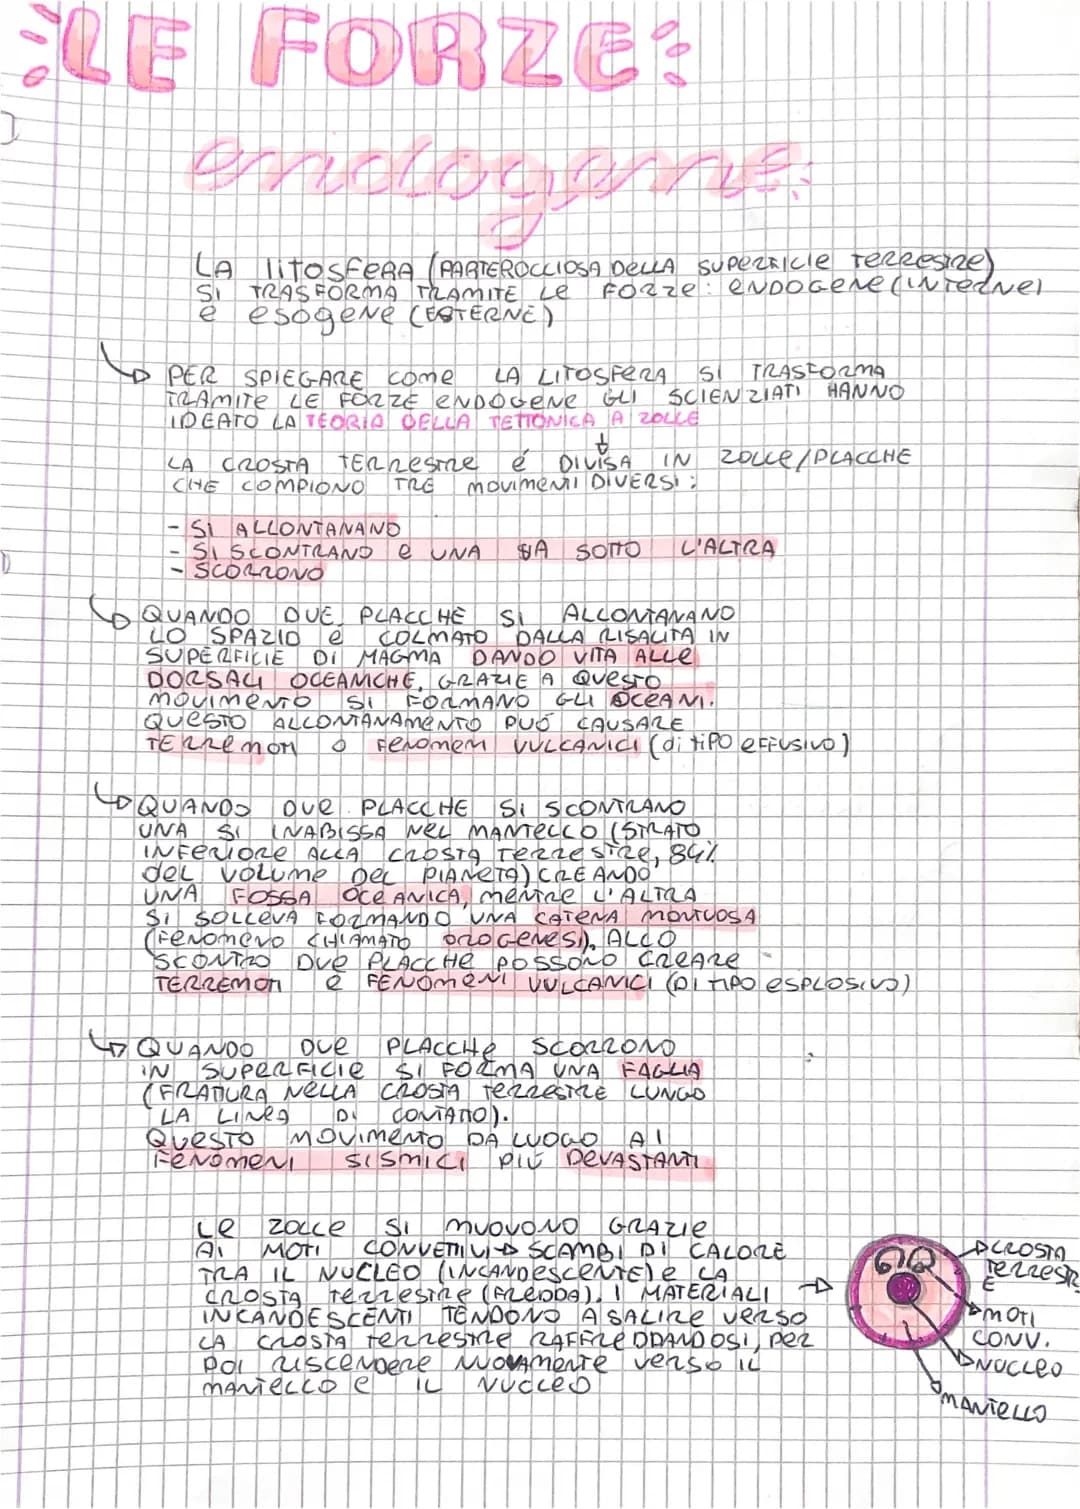 LE FORZE
endogene
LA LITOSFERA (PARTEROCCIOSA DELLA SUPERFICIE TERRESTRE)
SI TRASFORMA TRAMITE LE FORZE: ENDOGENE (INTERNE)
E ESOGENE (ESTERNE)
PER SPIEGARE COME LA LITOSFERA SI TRASFORMA
TRAMITE LE FORZE ENDOGENE GLI SCIENZIATI HANNO
IDEATO LA TEORIA DELLA TETTONICA A ZOLLE
LA CROSTA TERRESTRE É DIVISA IN ZOLLE/PLACCHE
CHE COMPIONO TRE MOVIMENTI DIVERSI:
- SI ALLONTANANO
- SI SCONTRANO E UNA VA SOTTO L'ALTRA
- SCORRONO
QUANDO DUE PLACCHE SI ALLONTANANO
LO SPAZIO É COLMATO DALLA RISALITA IN
SUPERFICIE DI MAGMA DANDO VITA ALLE
DORSALI OCEANICHE. GRAZIE A QUESTO
MOVIMENTO SI FORMANO GLI OCEANI.
QUESTO ALLONTANAMENTO PUÓ CAUSARE
TERREMOTI O FENOMENI VULCANICI (di TIPO EFFUSIVO)
QUANDO DUE PLACCHE SI SCONTRANO
UNA SI INABISSA NEL MANTELLO (STRATO
INFERIORE ALLA CROSTA TERRESTRE, 84%
DEL VOLUME DEL PIANETA) CREANDO
UNA FOSSA OCEANICA, MENTRE L'ALTRA
SI SOLLEVA FORMANDO UNA CATENA MONTUOSA
(FENOMENO CHIAMATO OROGENESI). ALLO
SCONTRO DUE PLACCHE POSSONO CREARE
TERREMOTI E FENOMENI VULCANICI (DI TIPO ESPLOSIVO)
QUANDO DUE PLACCHE SCORRONO
IN SUPERFICIE SI FORMA UNA FAGLIA
(FRATTURA NELLA CROSTA TERRESTRE LUNGO
LA LINEA DI CONTATTO).
QUESTO MOVIMENTO DA LUOGO AI
FENOMENI SISMICI PIÚ DEVASTANTI
LE ZOLLE SI MUOVONO GRAZIE
AI MOTI CONVETTIVI → SCAMBI DI CALORE
TRA IL NUCLEO (INCANDESCENTE) E LA
CROSTA TERRESTRE (FREDDA). I MATERIALI →
INCANDESCENTI TENDONO A SALIRE VERSO
LA CROSTA TERRESTRE RAFFREDDANDOSI, PER
POI RISCENDERE NUOVAMENTE VERSO IL
MANTELLO E IL NUCLEO
CROSTA
TERRESTR
E
MOTI
CONV.
NUCLEO
MANTELLO